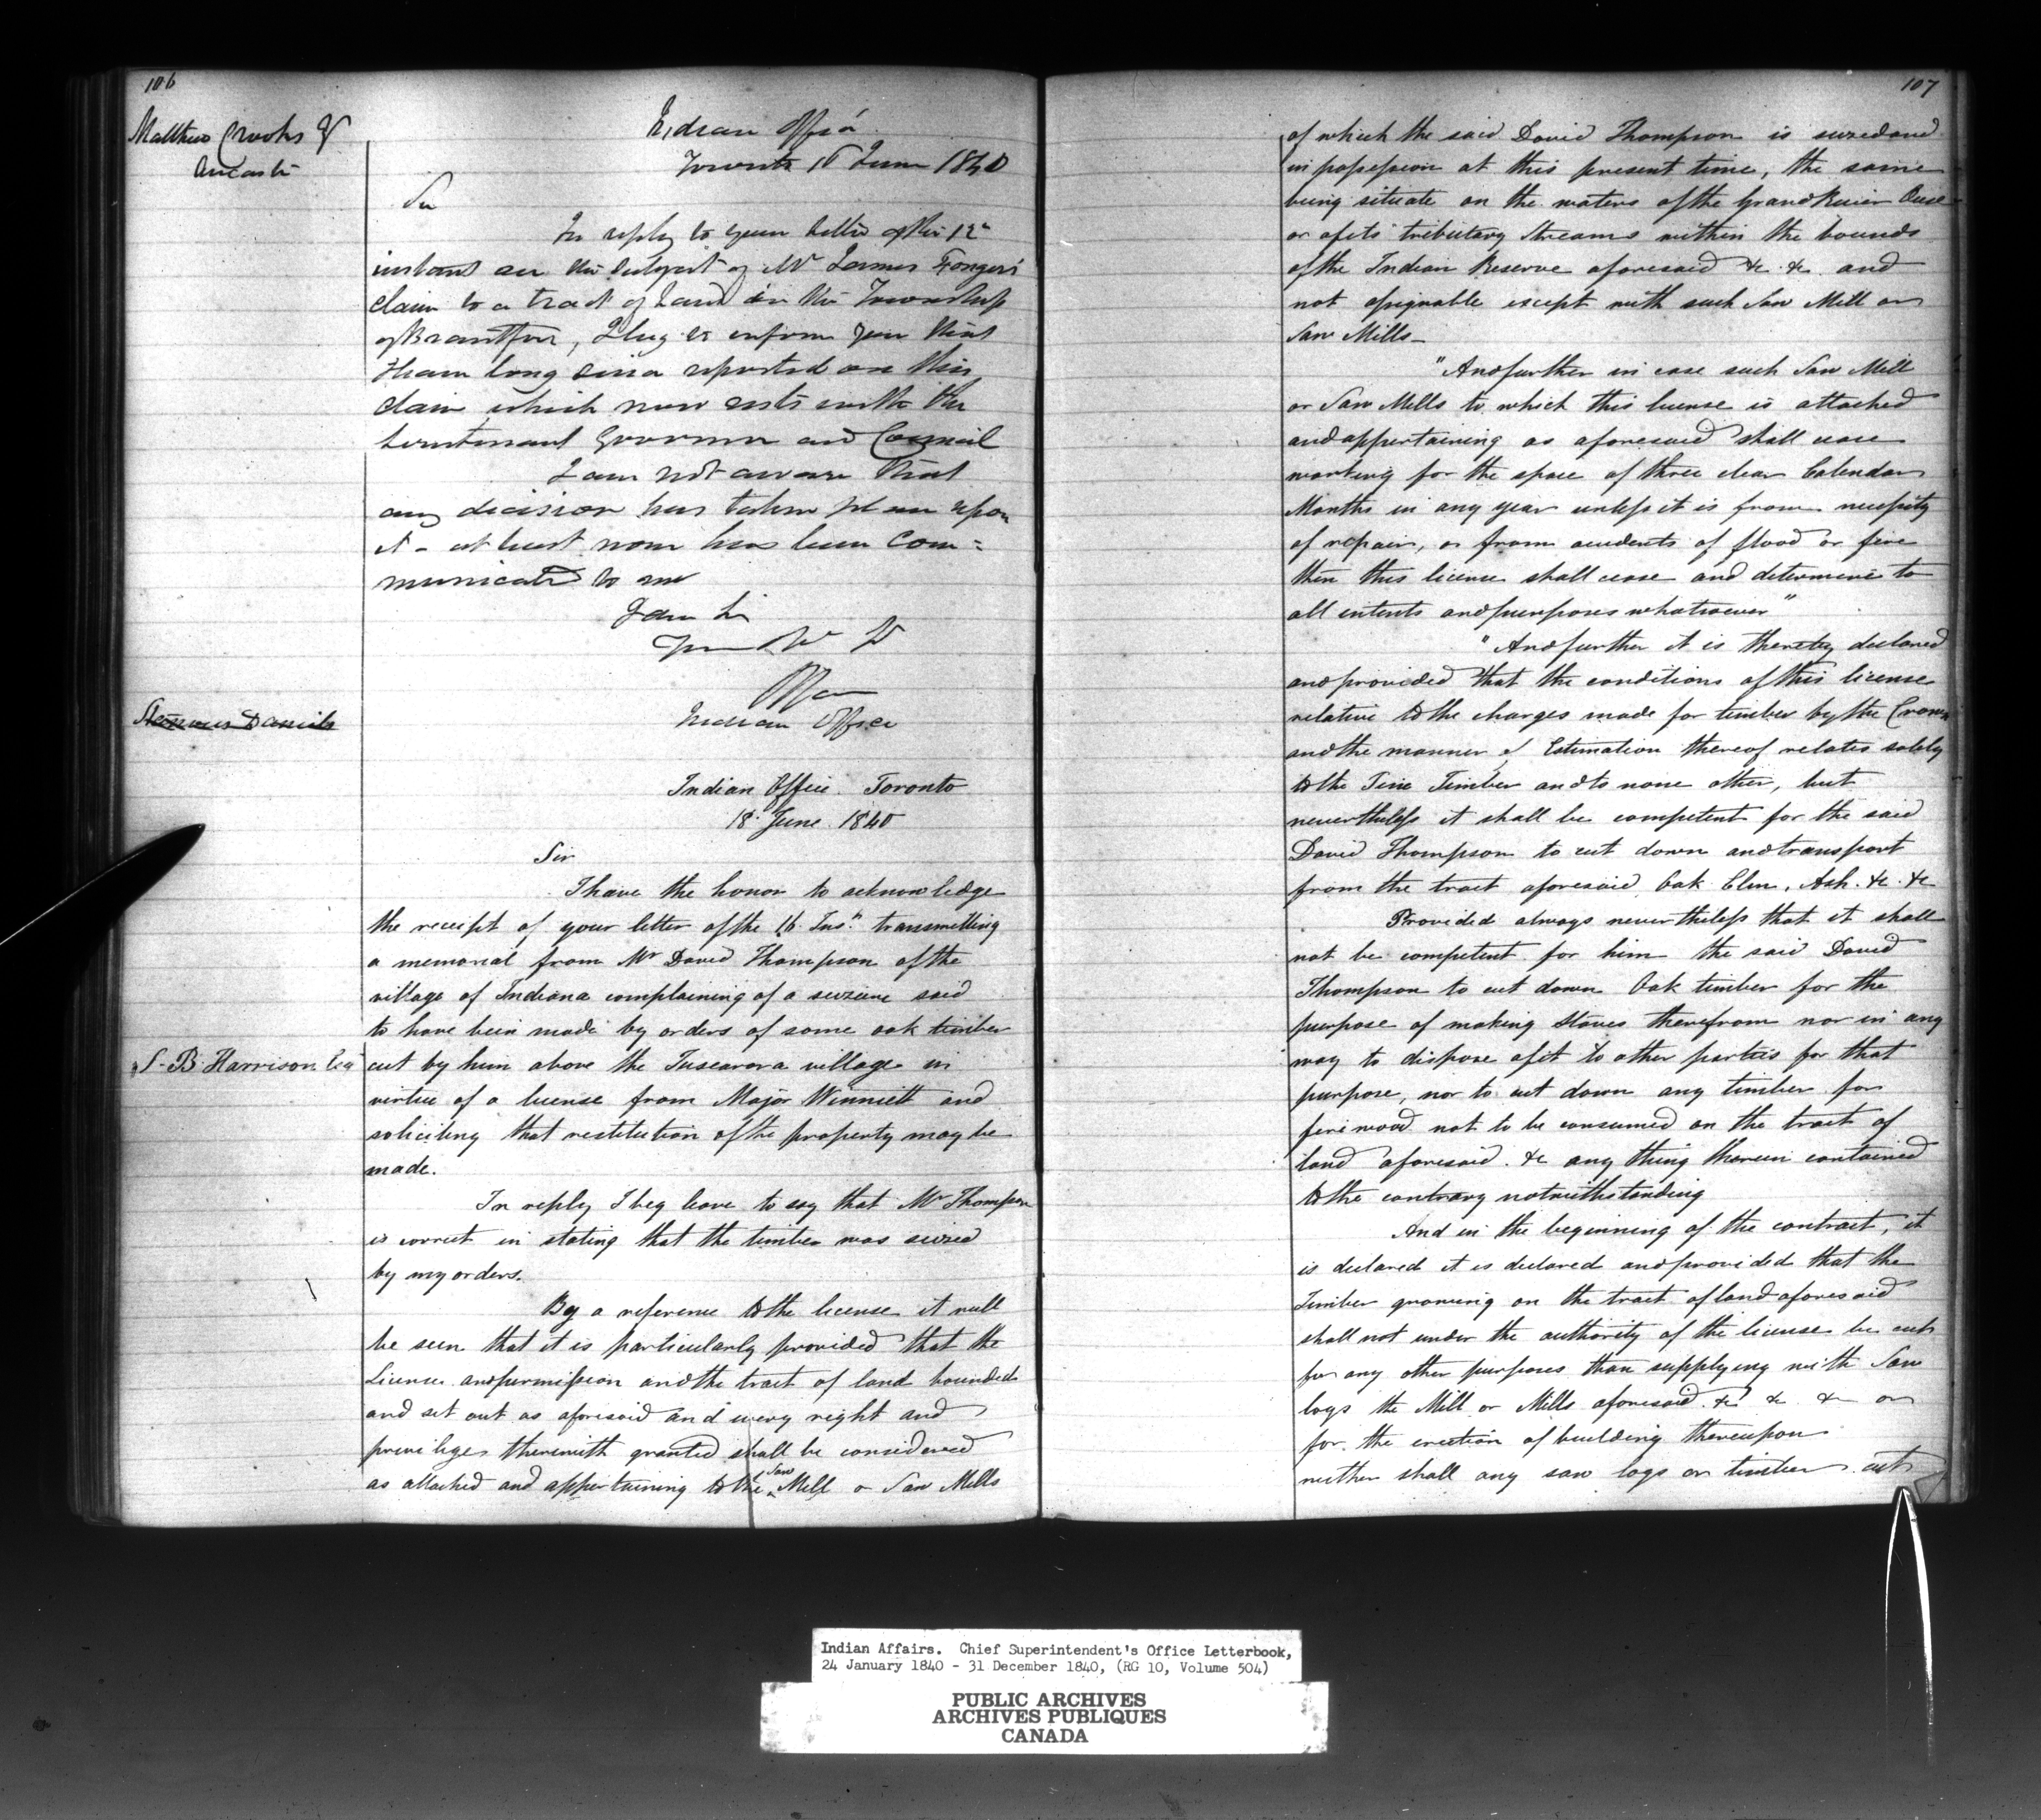 106
Matthew Crooks Esq
Ancaster
Indian Office
Toronto 16 June 1840
Sir
In reply to your letter of the 12th
instant on the subject of Mr James Fonger's
claim to a tract of Land in the Township
of Brantford, I beg to inform you that
I have long since reported on this
claim which now rests with the
Lieutenant Governor and Council
I am not aware that
any decision has taken place upon
it - at least none has been com=
municated to me
I am Sir
Indian Office
Indian Office Toronto
18 June 1840
S. B. Harrison Esq
Sir
I have the honor to acknowledge
the receipt of your letter of the 16 Inst. transmitting
a memorial from Mr David Thompson of the
village of Indiana complaining of a seizure said
to have been made by orders of some oak timber
cut by him above the Tuscarora village in
virtue of a license from Major Winniett and
soliciting that restitution of the property may be
made.
In reply I beg leave to say that Mr Thompson
is correct in stating that the timber was seized
by my orders.
By a reference to the license it will
be seen that it is particularly provided that the
License and permission and the tract of land bounded
and set out as aforesaid and every right and
privilege therewith granted shall be considered
as attached and appertaining to the Saw Mill or Saw Mills
107
of which the said David Thompson is seized and
in possession at this present time, the same
being situate on the waters of the Grand River Ouse
or of its tributary Streams within the bounds
of the Indian Reserve aforesaid &c. &c. and
not assignable except with such Saw Mill or
Saw Mills-
"And further in case such Saw Mill
or Saw Mills to which this license is attached
and appertaining as aforesaid shall cease
working for the space of three clear Calendar
Months in any year unless it is from necessity
of repair, or from accidents of flood or fire
then this license shall cease and determine to
all intents and purposes whatsoever"
"And further it is thereby declared
and provided that the conditions of this license
relative to the charges made for timber by the Crown
and the manner of Estimation thereof relates solely
to the Pine Timber and to none other, but
nevertheless it shall be competent for the said
David Thompson to cut down and transport
from the tract aforesaid Oak Elm, Ash. &c. &c
Provided always nevertheless that it shall
not be competent for him the said David
Thompson to cut down Oak timber for the
purpose of making Staves therefrom nor in any
way to dispose of it to other parties for that
purpose, nor to cut down any timber for
fire wood not to be consumed on the tract of
land aforesaid. &c any thing therein contained
to the contrary notwithstanding
And in the beginning of the contract, it
is declared it is declared and provided that the
Timber growing on the tract of land aforesaid
shall not under the authority of the license be cut
for any other purposes than supplying with Saw
logs the Mill or Mills aforesaid. &c &c &c or
for the erection of building thereupon
neither shall any saw logs or timber cut
Indian Affairs. Chief Superintendent's Office Letterbook,
24 January 1840 - 31 December 1840, (RG 10, Volume 504)
PUBLIC ARCHIVES
ARCHIVES PUBLIQUES
CANADA